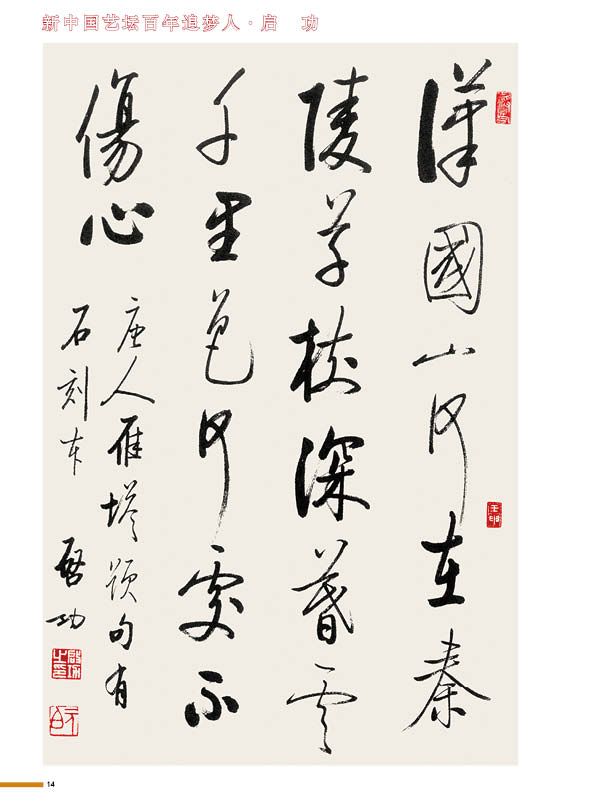 新中国艺坛百年追梦人·启 功
漢國山河在秦
陵草樹深暮雲
千里色何處不
傷心
唐人雁塔題句有
石刻本 啓功
啓功之印
元白
14